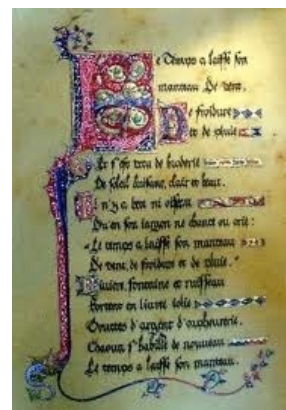 Le Temps a laissé son
manteau De vent,
De froidure
et de pluie
Et s'est vêtu de broderie
De soleil luisant, clair et beau.
Il n'y a ni oiseau
Qu'en son jargon ne chante ou crie :
"Le temps a laissé son manteau
De vent, de froidure et de pluie."
Rivière, fontaine et ruisseau
Portent en livrée jolie
Gouttes d'argent d'orfèvrerie.
Chacun s'habille de nouveau
Le temps a laissé son manteau.